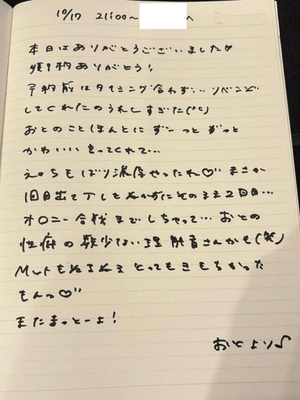 10/17 21:00〜 へ
本日はありがとうございました♡
頬り柄ありがとう!
予約前はタイミング合わず… リベンジ
してくれたのうれしすぎた(°°)
おとのことほんとに ずーっと ずっと
かわいい 言ってくれて…
えっちもばり濃厚やったね♡ まさか
1回目出て してぬかずにそのまま2回目…
オロニー合戦までしちゃって… おとの
性癖の数少ない理解者さんかも(笑)
Mっトもぬるぬる とってもきもちかった
もんっ♡
またまっとーよ!
おとより♪